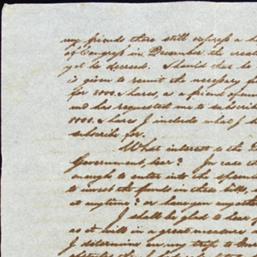 my friends there still express a h
of Congress in December the creat
yet be secured. Should that be
is given to remit the necessary f
for 2000 Shares, as a friend
me has requested me to subscribe
1000 Shares I include what I
subscribe for.
What interest to the
Government, per? In case
enough to enter into the
to invest the funds in these bills,
at anytime? or have you any other
I shall be glad to hear
as it will in a great measure
I determine on my trip to